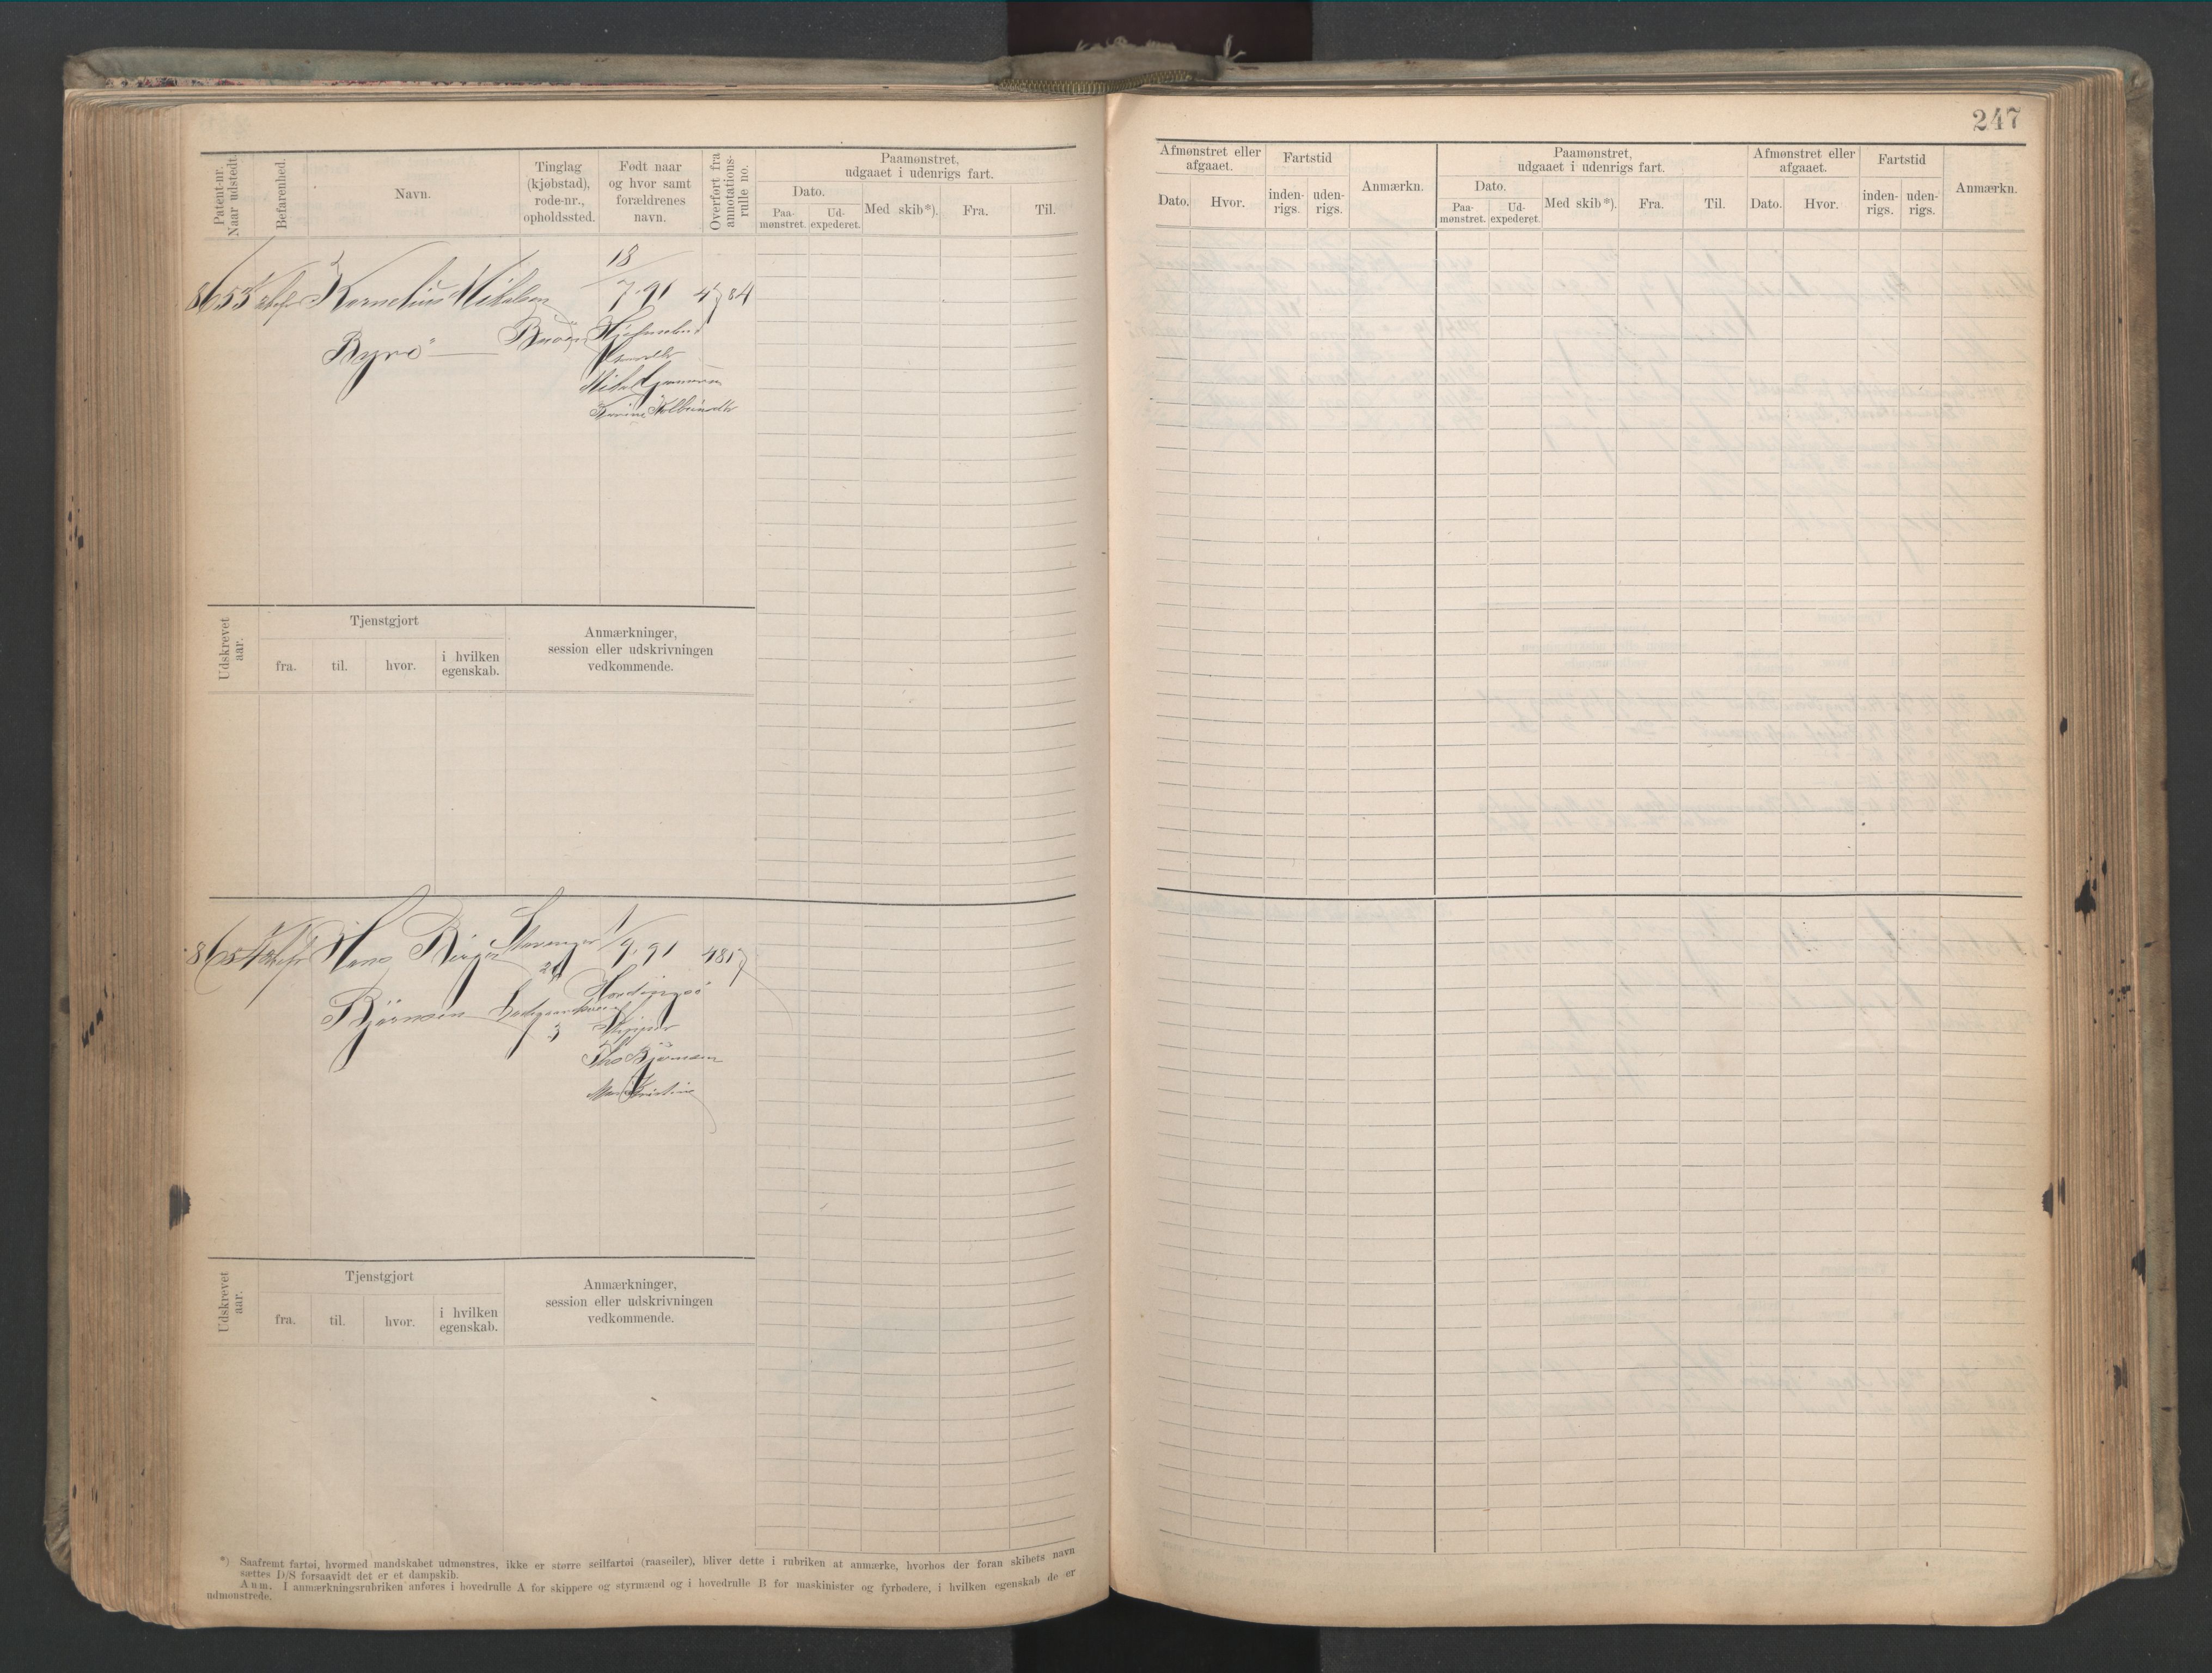 247
Patent-nr.
Naar udstedt.
Befarenhed.
Navn.
Tinglag
(kjøbstad),
rode-nr.,
opholdssted.
Født naar
og hvor samt
forældrenes
navn.
Overført fra
annotations-
rulle no.
Paamønstret,
udgaaet i udenrigs fart.
Dato.
Paa-
mønstret.
Ud-
expederet.
Med skib*).
Fra.
Til.
Afmønstret eller
afgaaet.
Dato.
Hvor.
Fartstid
inden-
rigs.
uden-
rigs.
Anmærkn.
Paamønstret,
udgaaet i udenrigs fart.
Dato.
Paa-
mønstret.
Ud-
expederet.
Med skib*).
Fra.
Til.
Afmønstret eller
afgaaet.
Dato.
Hvor.
Fartstid
inden-
rigs.
uden-
rigs.
Anmærkn.
18
8653 Kornelius Mikalsen 7.91 4784
Byrø
Mikal
Udskrevet
aar.
Tjenstgjort
fra.
til.
hvor.
i hvilken
egenskab.
Anmærkninger,
session eller udskrivningen
vedkommende.
8654 Hans Birger Stavanger 1/9.91 4817
Bjørnsen
3
Skipper
Ths Bjørnsen
Udskrevet
aar.
Tjenstgjort
fra.
til.
hvor.
i hvilken
egenskab.
Anmærkninger,
session eller udskrivningen
vedkommende.
*) Saafremt fartøi, hvormed mandskabet udmønstres, ikke er større seilfartøi (raaseiler), bliver dette i rubriken at anmærke, hvorhos der foran skibets navn
sættes D/S forsaavidt det er et dampskib.
Anm. I anmærkningsrubriken anføres i hovedrulle A for skippere og styrmænd og i hovedrulle B for maskinister og fyrbødere, i hvilken egenskab de er
udmønstrede.